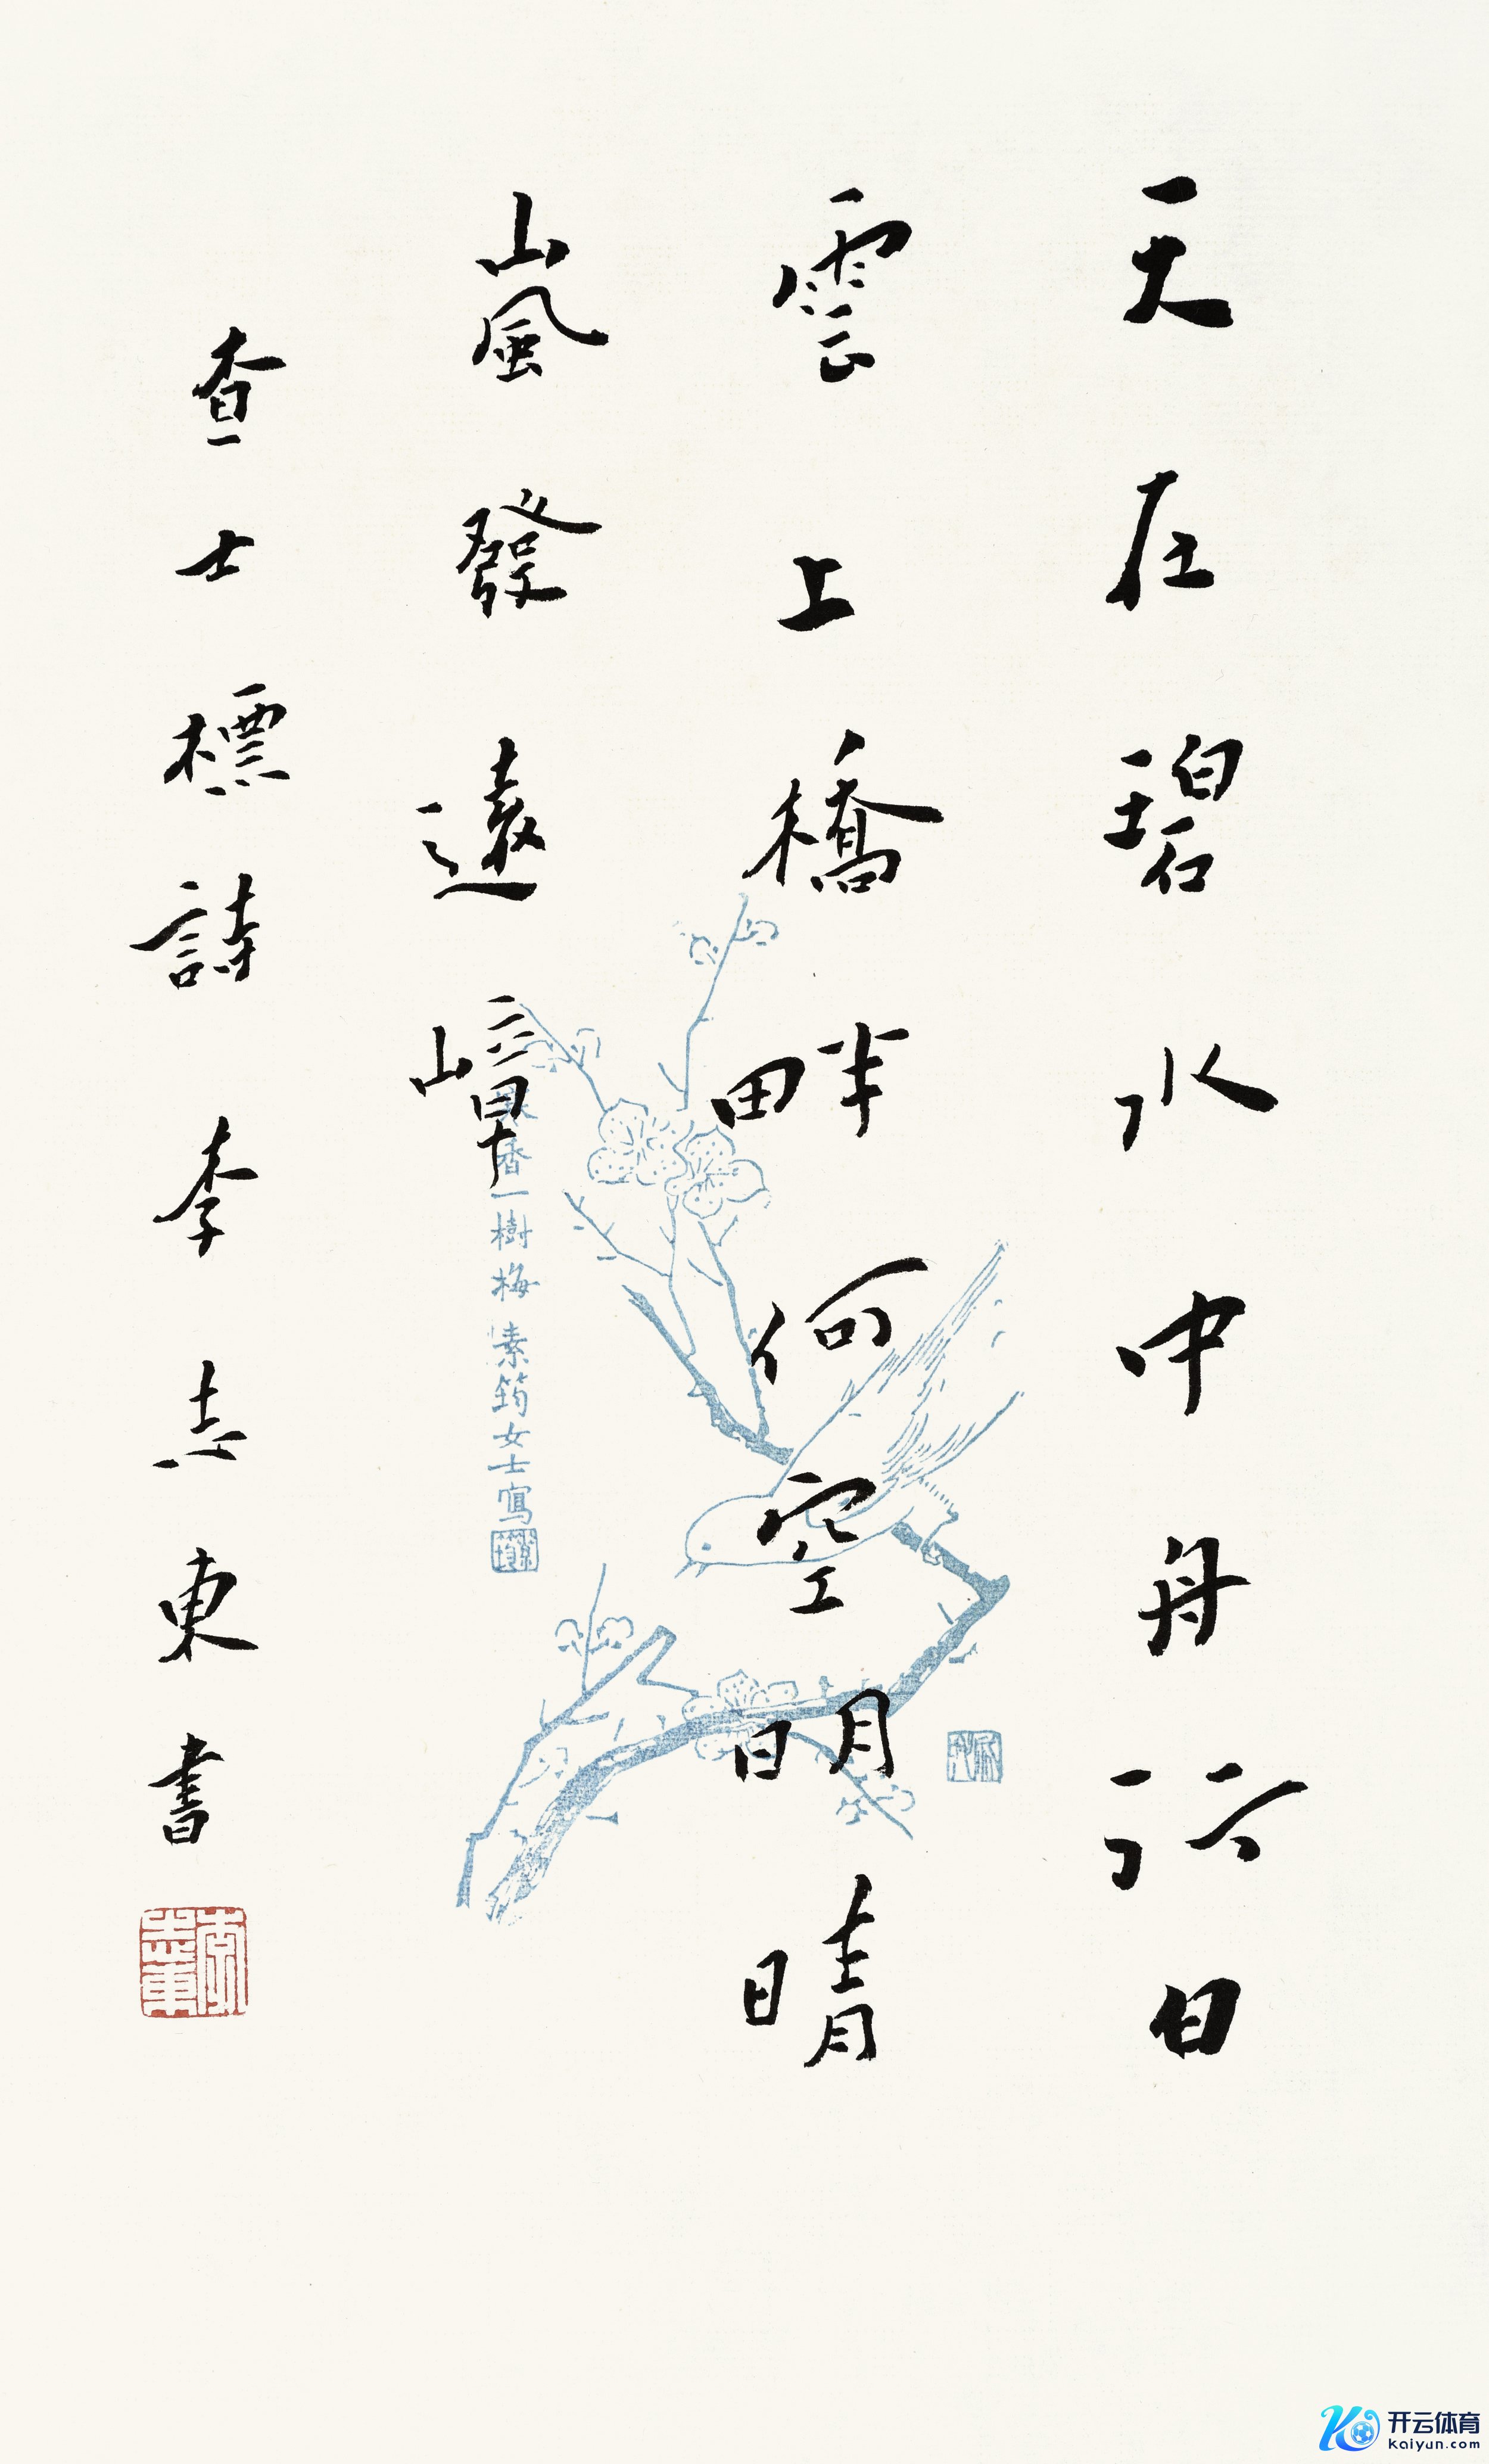 天在碧水中舟行白
雲上橋畔何空明晴
嵐發遠嶂
查士標詩李志東書
李志東
香一樹梅 素筠女士寫
开云体育
kaiyun.com